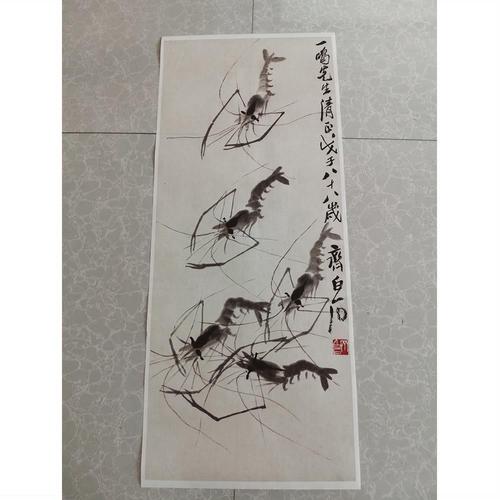 一鸣先生清正戊子八十八岁
齊白石